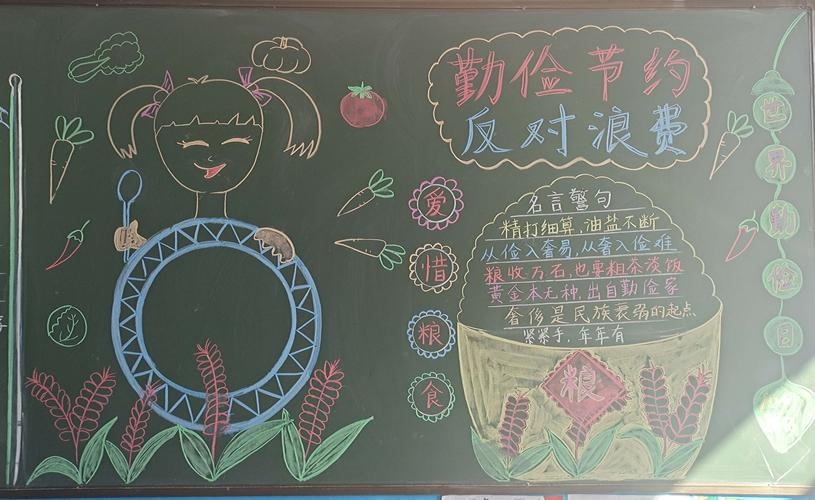 勤俭节约
反对浪费
爱惜粮食
名言警句
精打细算,油盐不断
从俭入奢易,从奢入俭难
粮收万石,也要粗茶淡饭
黄金本无种,出自勤俭家
奢侈是民族衰弱的起点
紧紧手,年年有
粮
世界勤俭日